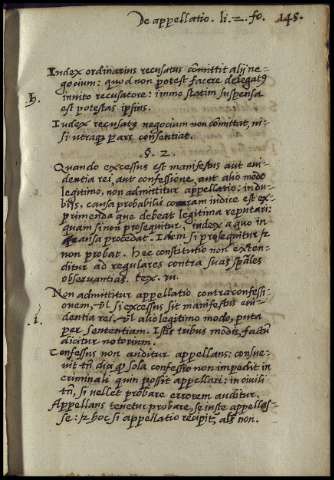 De appellatio. li. 2. fo. 145.
Iudex ordinarius recusatus cōmittit alij ne=
gocium: quod non potest facere delegatꝰ
h.
inuito recusatore: immo statim suspensa
est potestas ipsius.
Iudex recusatꝰ negocium non committit, ni=
si utraqꝫ parte consentiat.
§. 2.
Quando excessus est manifestus aut eui=
dentia rei, aut confessione, aut alio modo
legitimo, non admittitur appellatio: in du=
bijs, causa probabilis coram iudice est ex=
primenda que debeat legitima reputari:
quam si non prosequitur, iudex a quo in
causa procedat. Idem si prosequitur et
non probat. Hec constitutio non exten=
ditur ad regulares contra suas spāles
obseruantias. tex.
Non admittitur appellatio contra confessi=
onem, vel si excessus sit manifestus eui=
i.
dentia rei, vel alio legitimo modo, puta
per sententiam. Istis tribus modis, factū
dicitur notorium.
Confessus non auditur appellans: conue=
nit tn̄, sola confessio non impedit in
criminali quin possit appellari: in ciuili
tn̄, si vellet probare errorem auditur.
Appellans tenetur probare, se iuste appellas=
se: et hoc si appellatio recipit, als non.